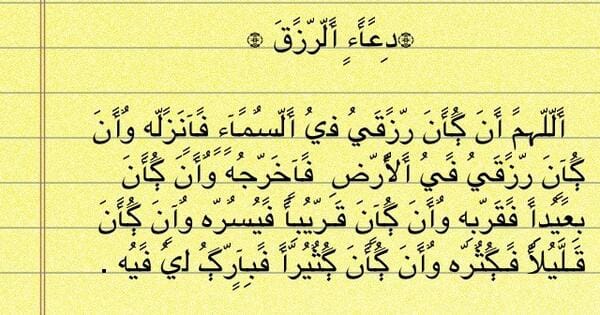 ۞دعًأًءٍ أًلّرّزًقَ ۞
أًلّلّهمً أنَ كُأنَ رّزًقَيُ فيُ أًلّسًمًأًء فًأًنَزًلّه وٌأنَ
كُأنَ رّزًقَيُ فيُ ألأرّضِ فًأًخِرّجُه وٌأنَ كُأنَ
بعًيُدِأً فًقَرّبه وٌأنَ كُأنَ قَرّيُبأً فًيُسًرّه وٌأنَ كُأنَ
قَلّيُلأً فًكُثًرّه وٌأنَ كُأنَ كُثًيُرّأً فًبأًرّكُ ليُ فًيُه .